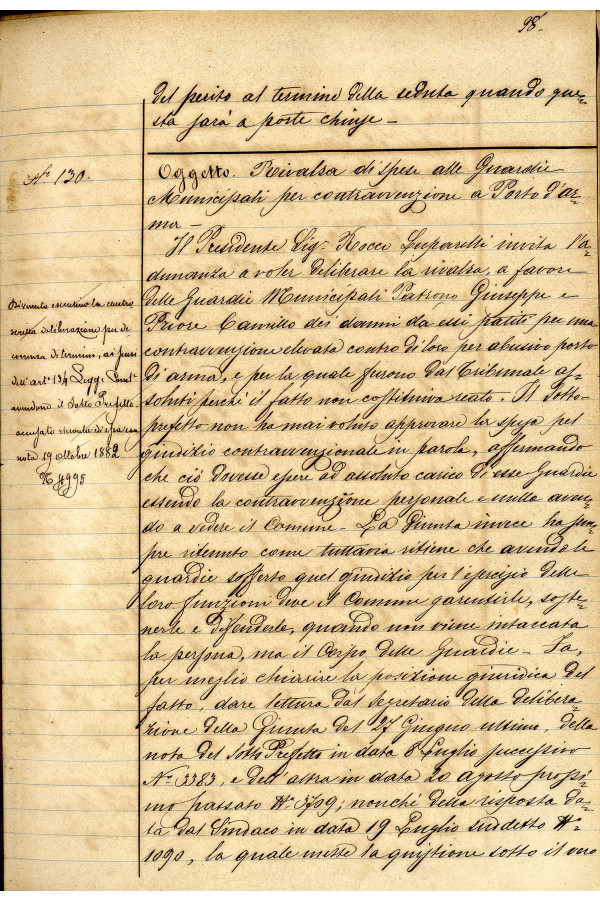 98.
del perito al termine della seduta quando que-
sta sarà a porte chiuse -
N° 130.
Oggetto. Rivalsa di spese alle Guardie
Municipali per contravvenzione a Porto d'ar-
ma -
Il Presidente Sig. Rocco Luparelli invita l'a-
dunanza a voler deliberare la rivalsa, a favore
delle Guardie Municipali Patrono Giuseppe e
Priore Camillo dei danni da essi patiti per una
contravvenzione elevata contro di loro per abusivo porto
di arma, e per la quale furono dal Tribunale as-
soluti perché il fatto non costituiva reato. Il Sotto-
prefetto non ha mai voluto approvare la spesa pel
giudizio contravvenzionale in parola, affermando
che ciò dovesse essere ad assoluto carico di esse Guardie
essendo la contravvenzione personale e nulla aven-
do a vedere il Comune - La Giunta invece ha sem-
pre ritenuto come tuttavia ritiene che avendo le
guardie sofferto quel giudizio per l'esercizio delle
loro funzioni deve il Comune garentirle, soste-
nerle e difenderle, quando non viene intaccata
la persona, ma il Corpo delle Guardie - Fa,
per meglio chiarire la posizione giuridica del
fatto, dare lettura dal Segretario della delibera-
zione della Giunta del 27 Giugno ultimo, della
nota del Sotto Prefetto in data 8 Luglio successivo
N° 3383, e dell'altra in data 20 agosto prossi-
mo passato N° 3709; nonché della risposta da-
ta dal Sindaco in data 19 Luglio suddetto N°
1090, la quale mette la quistione sotto il vero
Divenuta esecutiva la contro
scritta deliberazione per de
correnza di termine, ai sensi
dell'art° 134 Legge Com.le
avendone il Sotto Prefetto
accusato ricevuta di essa con
nota 19 Ottobre 1882
N 4995